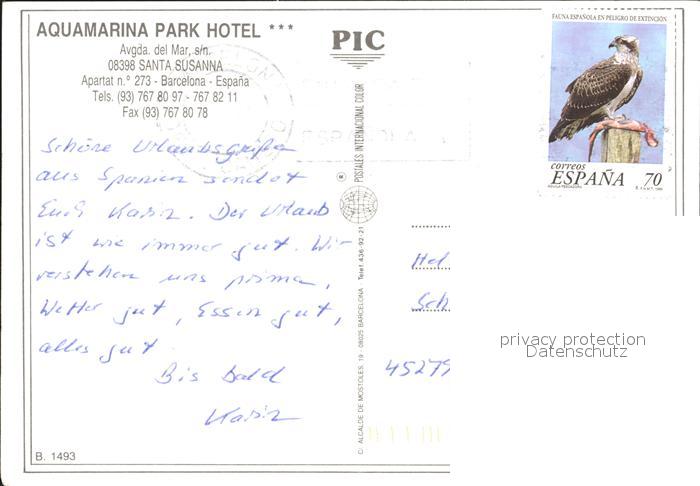 AQUAMARINA PARK HOTEL ***
Avgda. del Mar, s/n.
08398 SANTA SUSANNA
Apartat n.º 273 - Barcelona - España
Tels. (93) 767 80 97 - 767 82 11
Fax (93) 767 80 78
Schöne Urlaubsgrüße
aus Spanien sendet
Euch Karin. Der Urlaub
ist wie immer gut. Wir
verstehen uns prima,
Wetter gut, Essen gut,
alles gut.
Bis bald
Karin
B. 1493
PIC
POSTALES INTERNACIONAL COLOR
C/ ALCALDE DE MOSTOLES, 19 - 08025 BARCELONA Telef. 436-92-21
ESPAÑOLA
FAUNA ESPAÑOLA EN PELIGRO DE EXTINCIÓN
correos
ESPAÑA 70
AGUILA PESCADORA
Hel
Sch
45279
privacy protection
Datenschutz